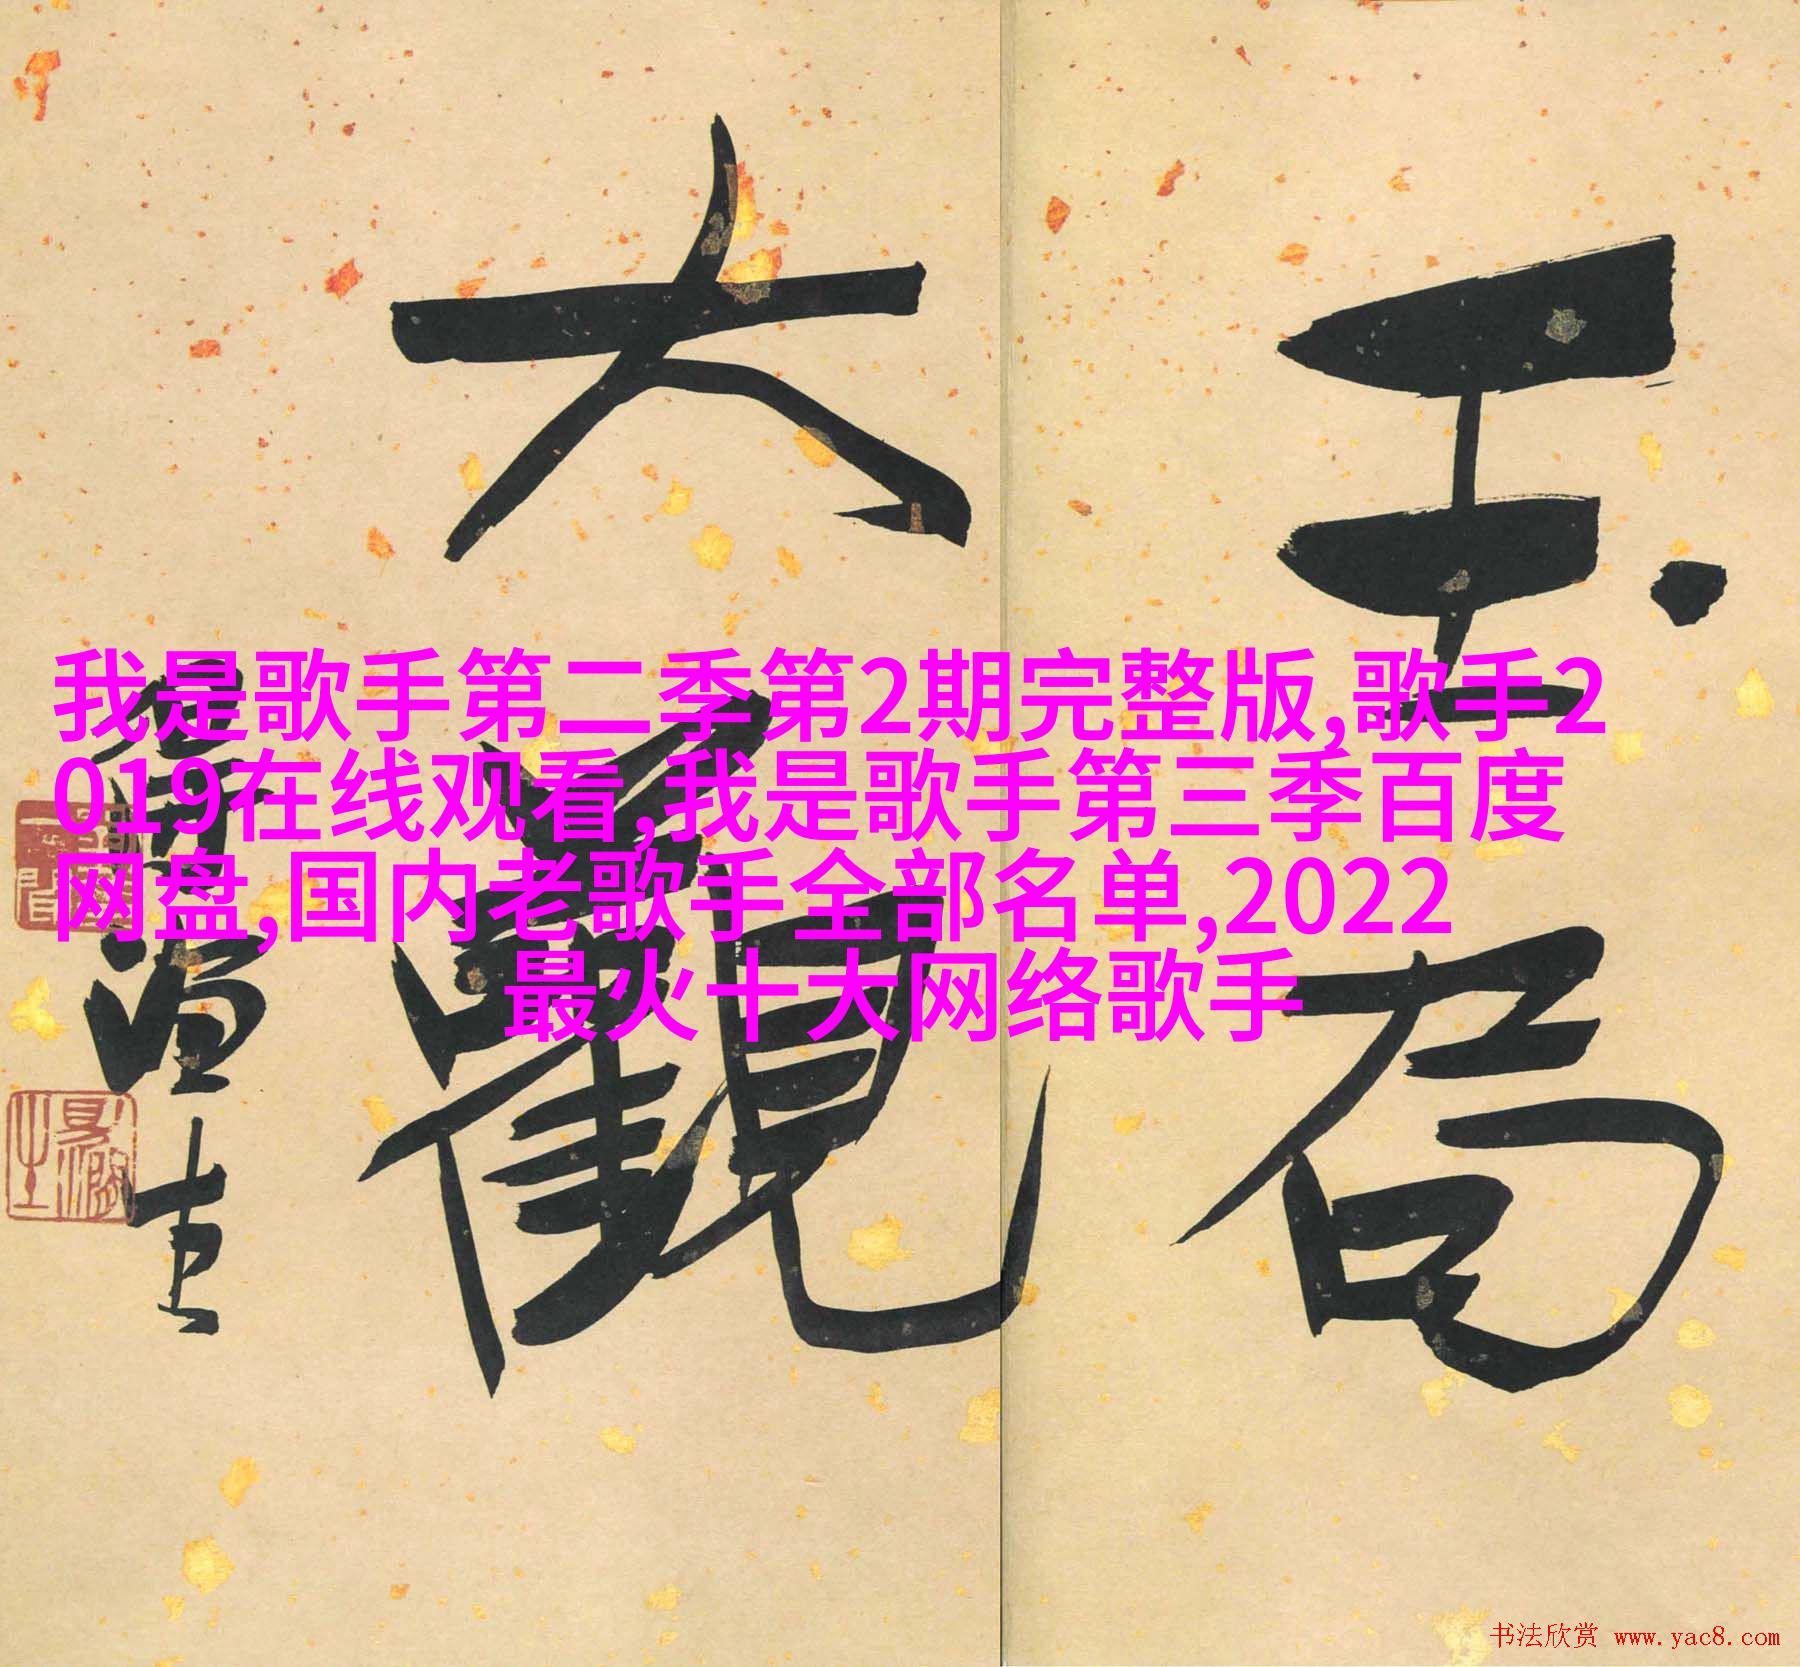 玉局
大觀
我是歌手第二季第2期完整版,歌手2
019在线观看,我是歌手第三季百度
网盘,国内老歌手全部名单,2022
最火十大网络歌手
书法欣赏 www.yac8.com